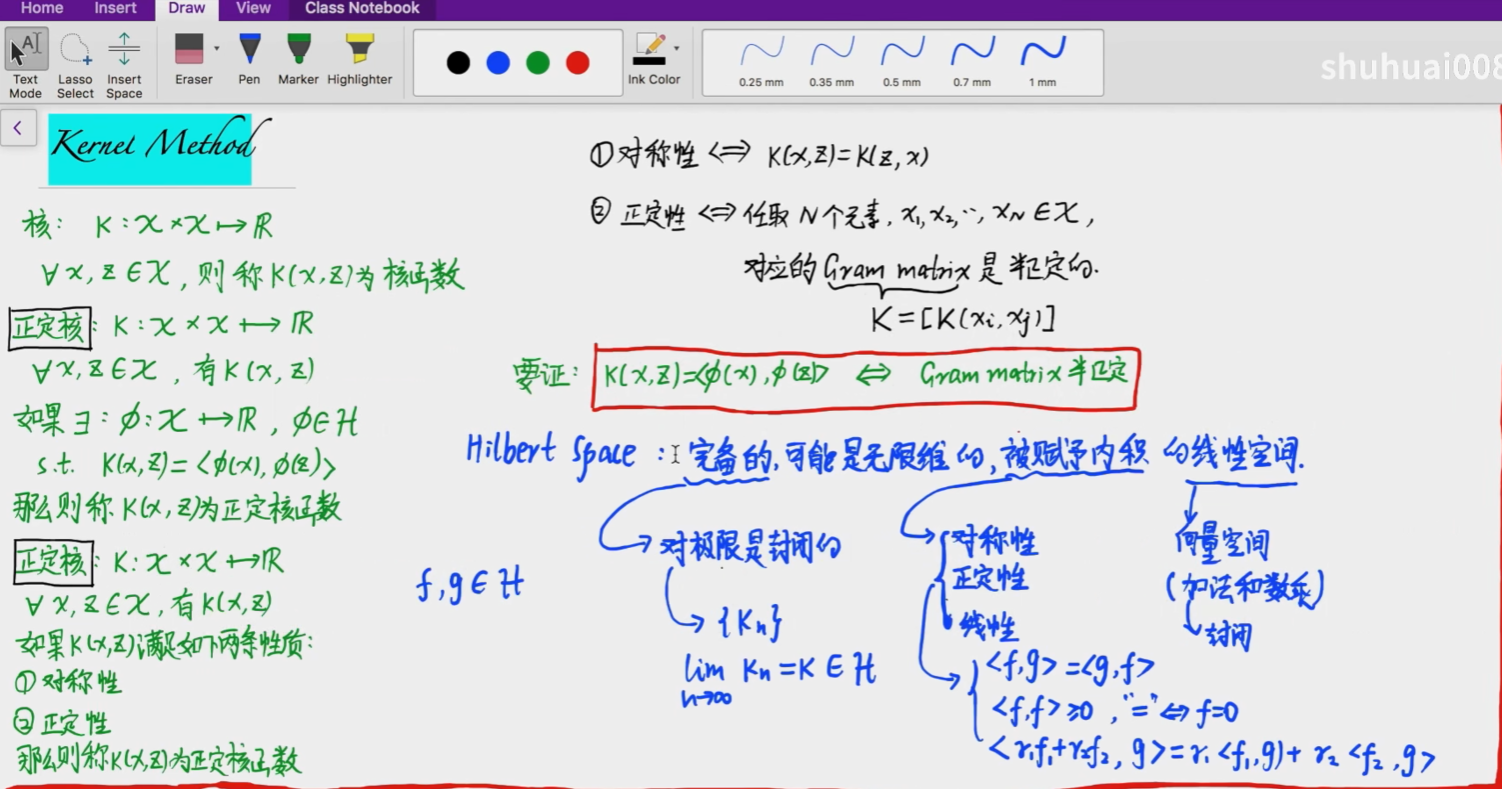 Home Insert Draw View Class Notebook
Text Mode
Lasso Select
Insert Space
Eraser
Pen
Marker
Highlighter
Ink Color
0.25 mm
0.35 mm
0.5 mm
0.7 mm
1 mm
shuhuai008
Kernel Method
核: K:𝒳×𝒳↦ℝ
∀x,z∈𝒳,则称K(x,z)为核函数
正定核: K:𝒳×𝒳↦ℝ
∀x,z∈𝒳,有K(x,z)
如果∃:φ:𝒳↦ℝ,φ∈ℋ
s.t. K(x,z)=<φ(x),φ(z)>
那么则称K(x,z)为正定核函数
正定核: K:𝒳×𝒳↦ℝ
∀x,z∈𝒳,有K(x,z)
如果K(x,z)满足如下两条性质:
①对称性
②正定性
那么则称K(x,z)为正定核函数
①对称性⇔K(x,z)=K(z,x)
②正定性⇔任取N个元素,x₁,x₂,…,x_N∈𝒳,
对应的Gram matrix是半正定的.
K=[K(xᵢ,xⱼ)]
要证: K(x,z)=<φ(x),φ(z)> ⇔ Gram matrix半正定
Hilbert Space:完备的,可能是无限维的,被赋予内积的线性空间.
f,g∈ℋ
对极限是封闭的
{Kₙ}
lim Kₙ=K∈ℋ
n→∞
对称性
正定性
线性
<f,g>=<g,f>
<f,f>≥0,"="⇔f=0
<r₁f₁+r₂f₂,g>=r₁<f₁,g)+r₂<f₂,g>
向量空间
(加法和数乘)
封闭